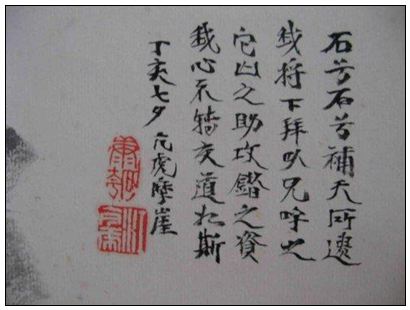 石兮石兮補天所遺
我將下拜以兄呼之
它山之助攻錯之資
我心不轉交道於斯
丁亥七夕 虎摩崖